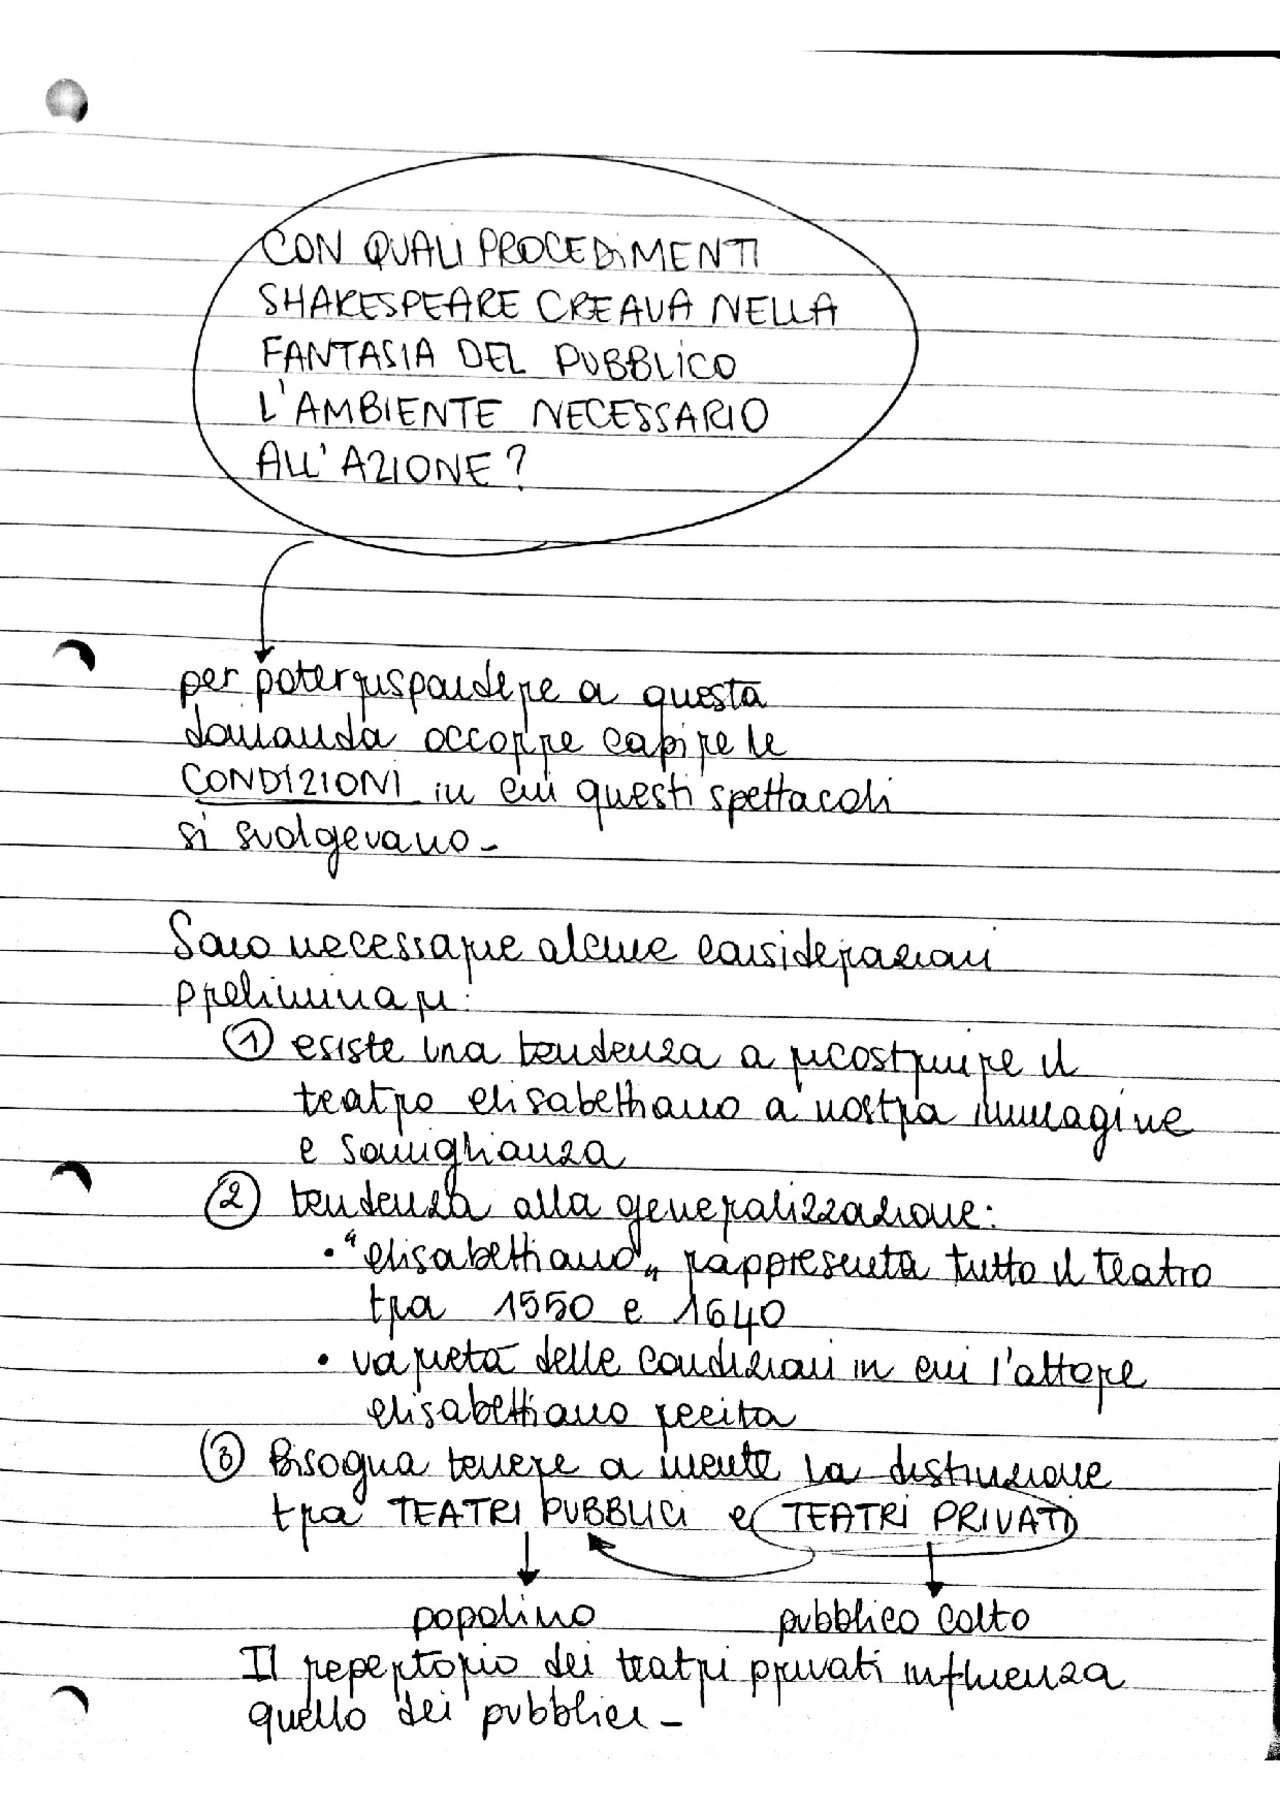 CON QUALI PROCEDIMENTI
SHAKESPEARE CREAVA NELLA
FANTASIA DEL PUBBLICO
L'AMBIENTE NECESSARIO
ALL'AZIONE?
per poter rispondere a questa
domanda occorre capire le
CONDIZIONI in cui questi spettacoli
si svolgevano-
Sono necessarie alcune considerazioni
preliminari:
① esiste una tendenza a ricostruire il
teatro elisabethano a nostra immagine
e somiglianza
② tendenza alla generalizzazione:
• "elisabethiano" rappresenta tutto il teatro
tra 1550 e 1640
• varietà delle condizioni in cui l'attore
elisabethiano recita
③ Bisogna tenere a mente la distinzione
tra TEATRI PUBBLICI e TEATRI PRIVATI
popolino pubblico colto
Il repertorio dei teatri privati influenza
quello dei pubblici-